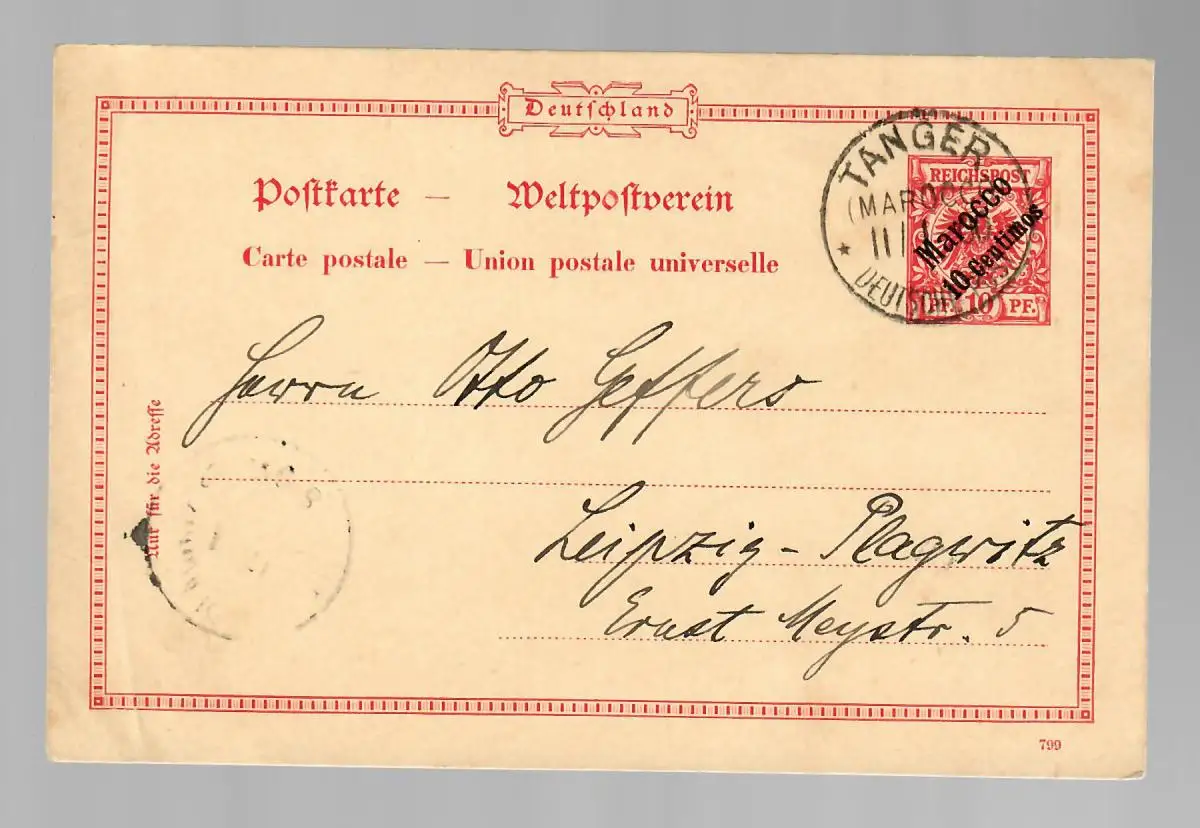 Deutschland
Postkarte — Weltpostverein
Carte postale — Union postale universelle
TANGER
(MAROCCO)
11/
DEUTSCHE
REICHSPOST
Marocco
10 Centimos
PF. 10 PF.
Herrn Otto Geffers
Nur für die Adresse
Leipzig - Plagwitz
Ernst Meystr. 5
799